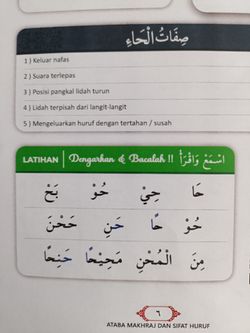 صِفَاتُ الْحَاءِ
1 ) Keluar nafas
2 ) Suara terlepas
3 ) Posisi pangkal lidah turun
4 ) Lidah terpisah dari langit-langit
5 ) Mengeluarkan huruf dengan tertahan / susah
LATIHAN | Dengarkan & Bacalah !! اِسْمَعْ وَاقْرَأْ
حَا حِيْ حُوْ بَحْ
حُوْ حًا حَنِ حَحْنَ
مِنَ الْمُحْنِ مَحِيْحًا حَنِحًا
٦
ATABA MAKHRAJ DAN SIFAT HURUF